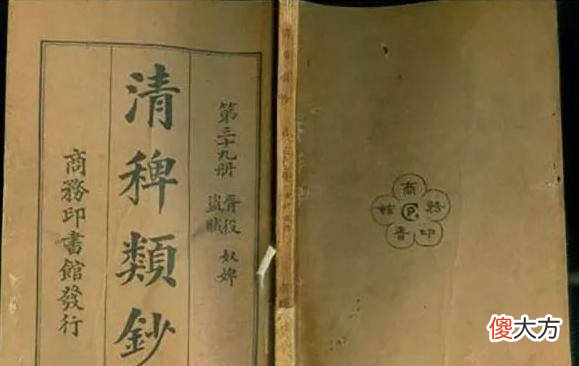 第三十九册
胥役 奴婢
盜賊
清稗類鈔
商務印書館發行
商務印書館
傻大方